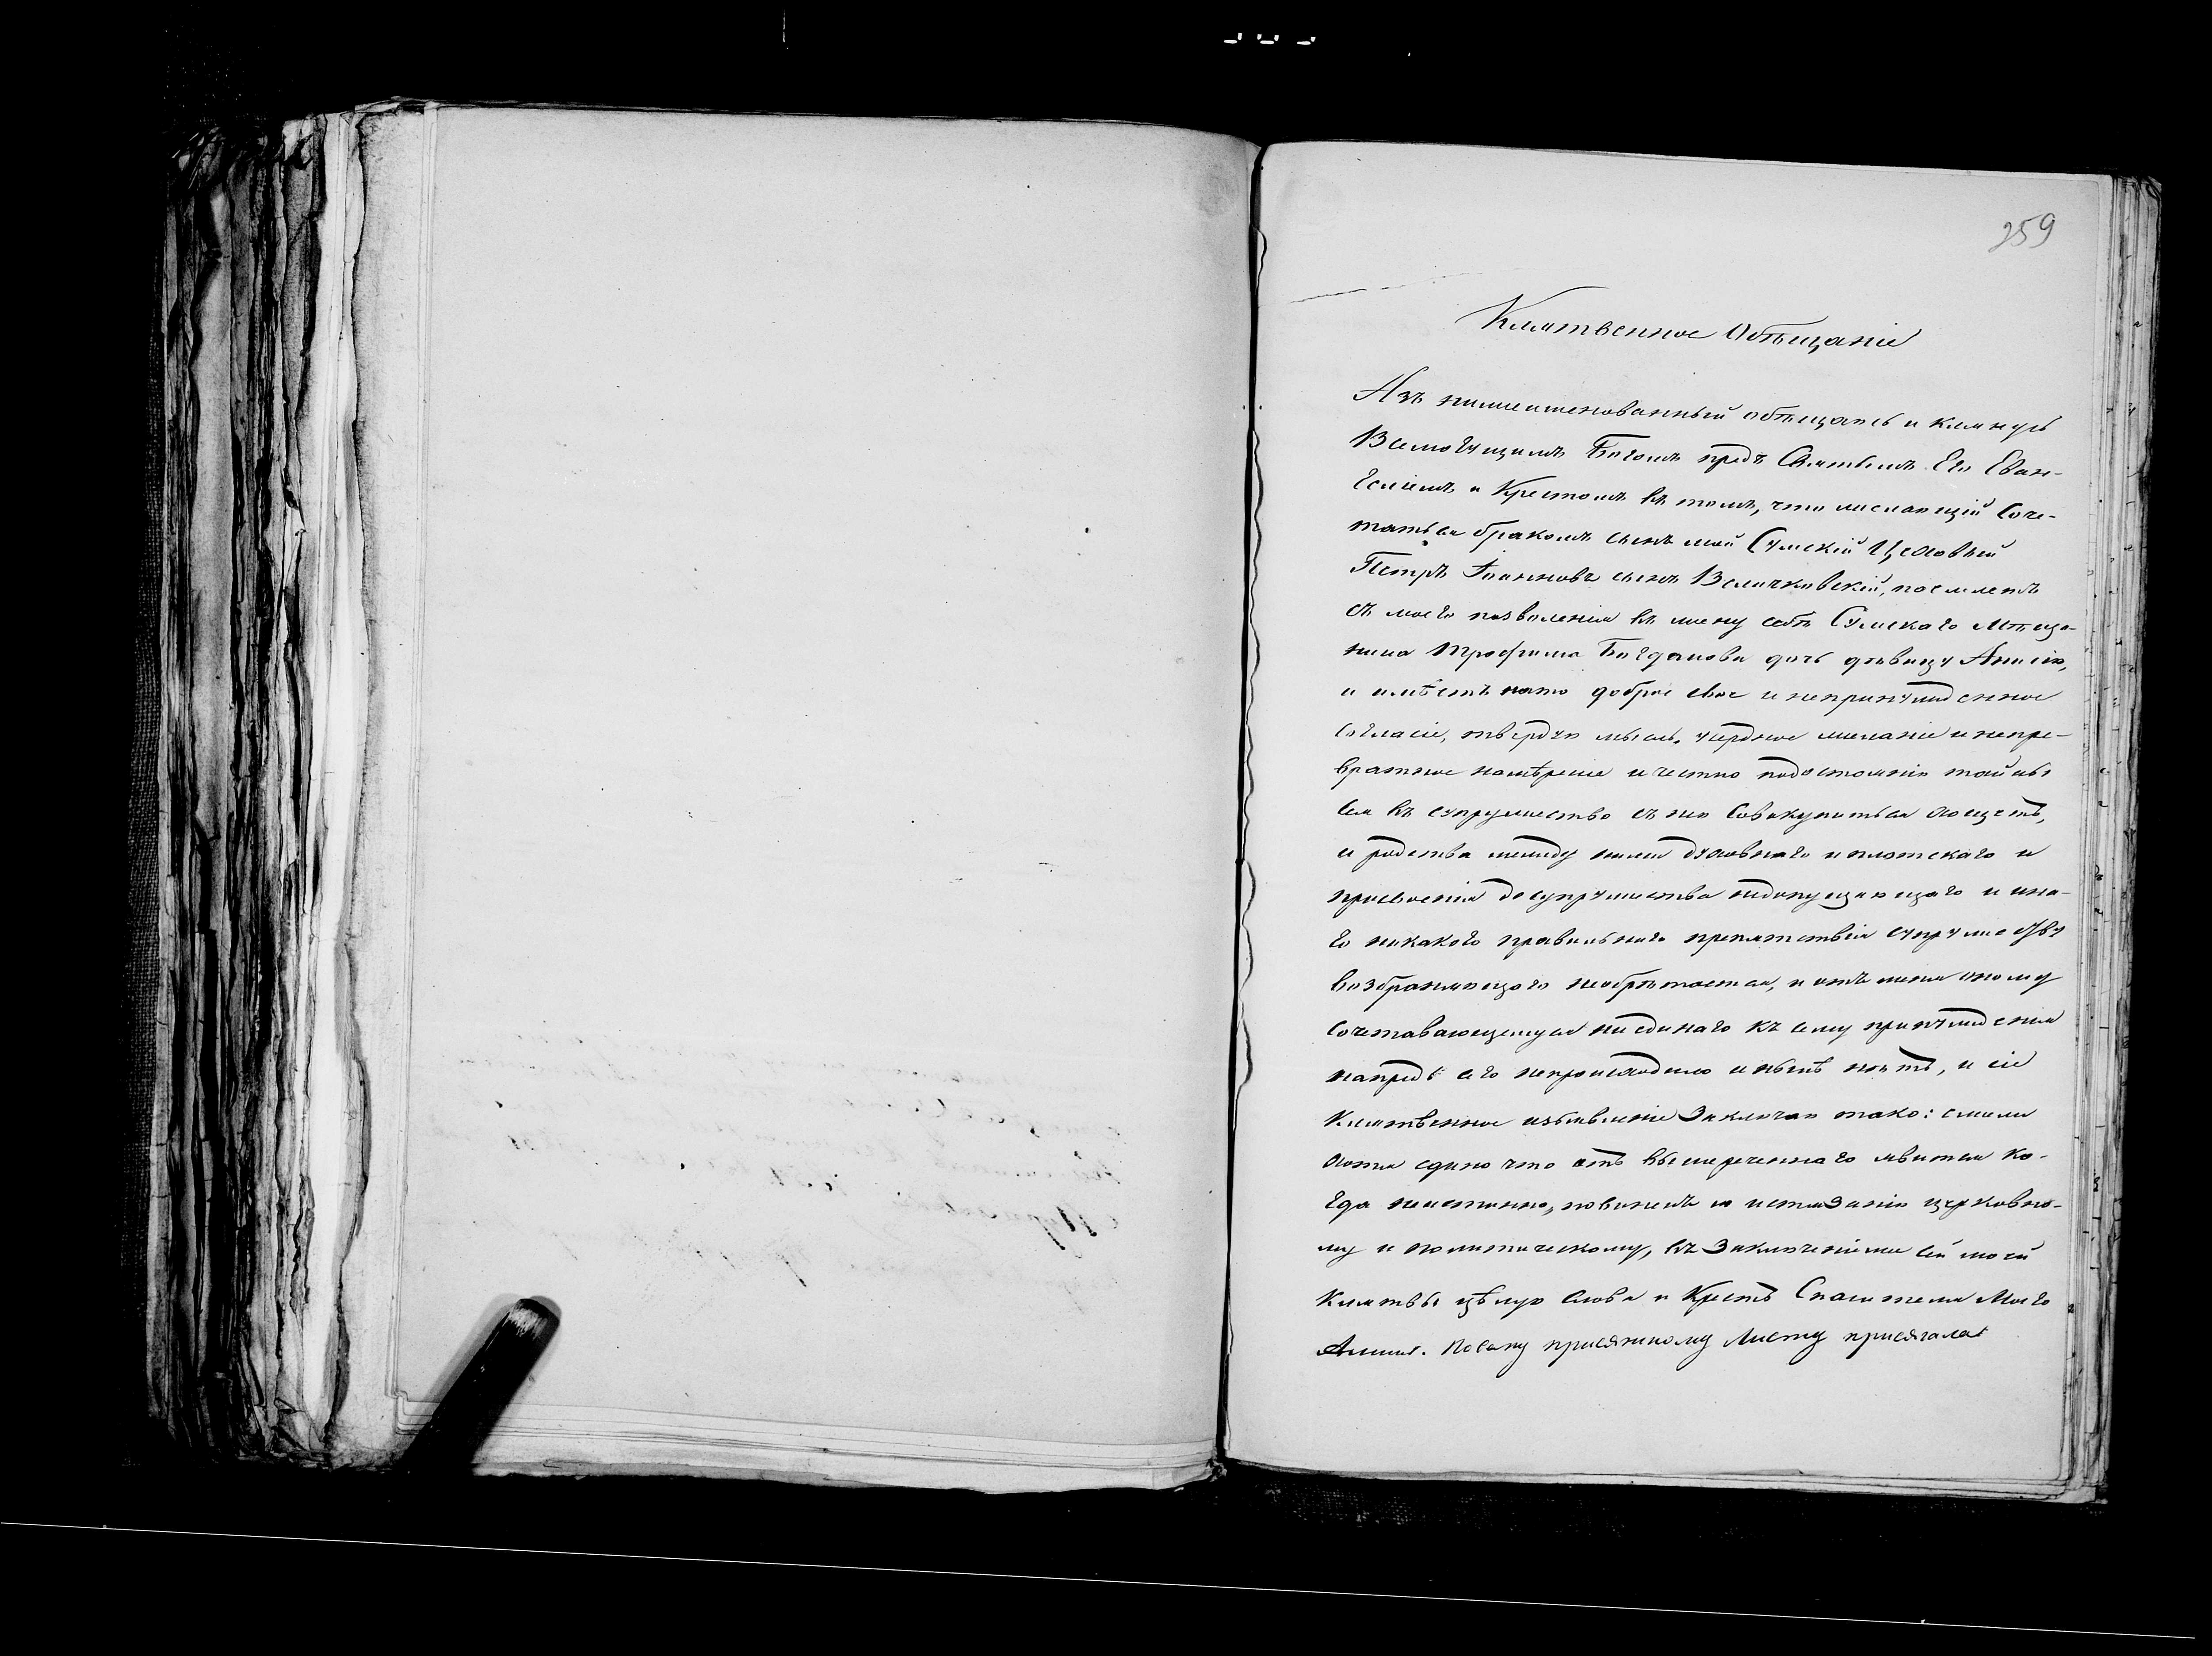 259
Клятвенное Обѣщаніе
Азъ нижеименованный обѣщаюсь и клянусь
Всемогущимъ Богомъ предъ Святымъ Его Еван-
геліемъ и Крестомъ въ томъ, что желающій соче-
таться бракомъ сынъ мой Сумскій Цеховый
Петръ Іоанновъ сынъ Величковскій, поемлетъ
съ моего позволенія въ жену себѣ Сумскаго Мѣща-
нина Трофима Богданова дочь дѣвицу Анисію,
и имѣетъ нато доброе свое и непринужденное
согласіе, твердую мысль, усердное желаніе и непре-
вратное намѣреніе и честно подостоянію тайны
сея въ супружество съ нею совокупиться хощетъ,
и родства между ними духовнаго и плотскаго и
присвоенія досупружества недопущающаго и ина-
го никакого правильнаго препятствія супружеству
возбраняющаго необрѣтается, и отъ меня оному
сочетавающемуся ниединаго къ сему принужденія
напредь сего непроисходило и нынѣ нѣтъ, и сіе
Клятвенное изъявленіе Заключаю тако: ежели
хотя едино что отъ вышереченнаго явится ко-
гда неистинно, повиненъ я истязанію церковно-
му и политическому, въ Заключеніеже сей моей
Клятвы цѣлую слова и Крестъ Спасителя Моего
Аминь. Посему присяжному Листу присягала